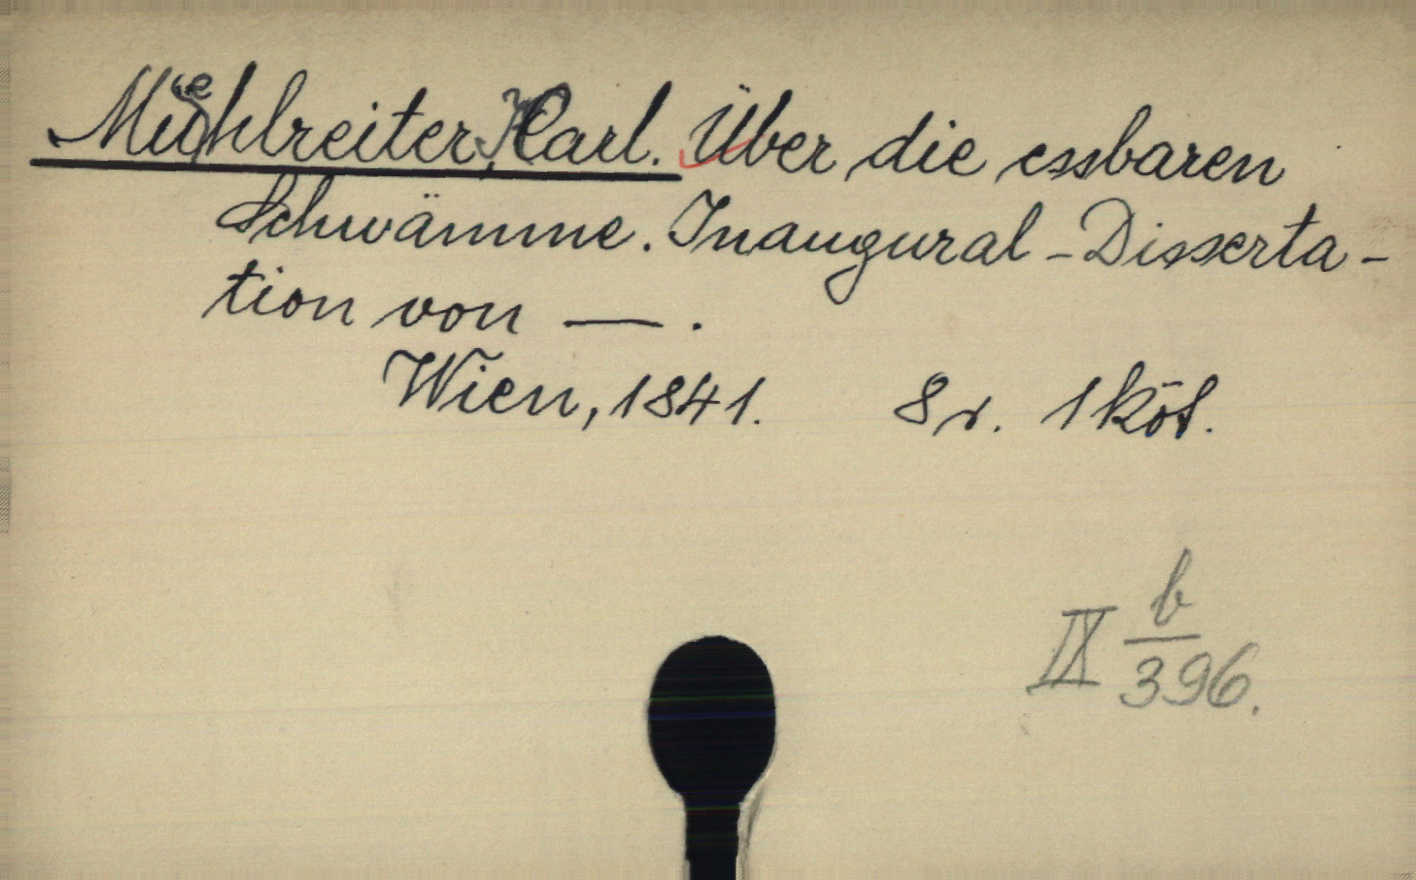 Muehlreiter, Karl. Über die essbaren
Schwämme. Inaugural-Disserta-
tion von —.
Wien, 1841. 8r. 1 köt.
IX b/396.